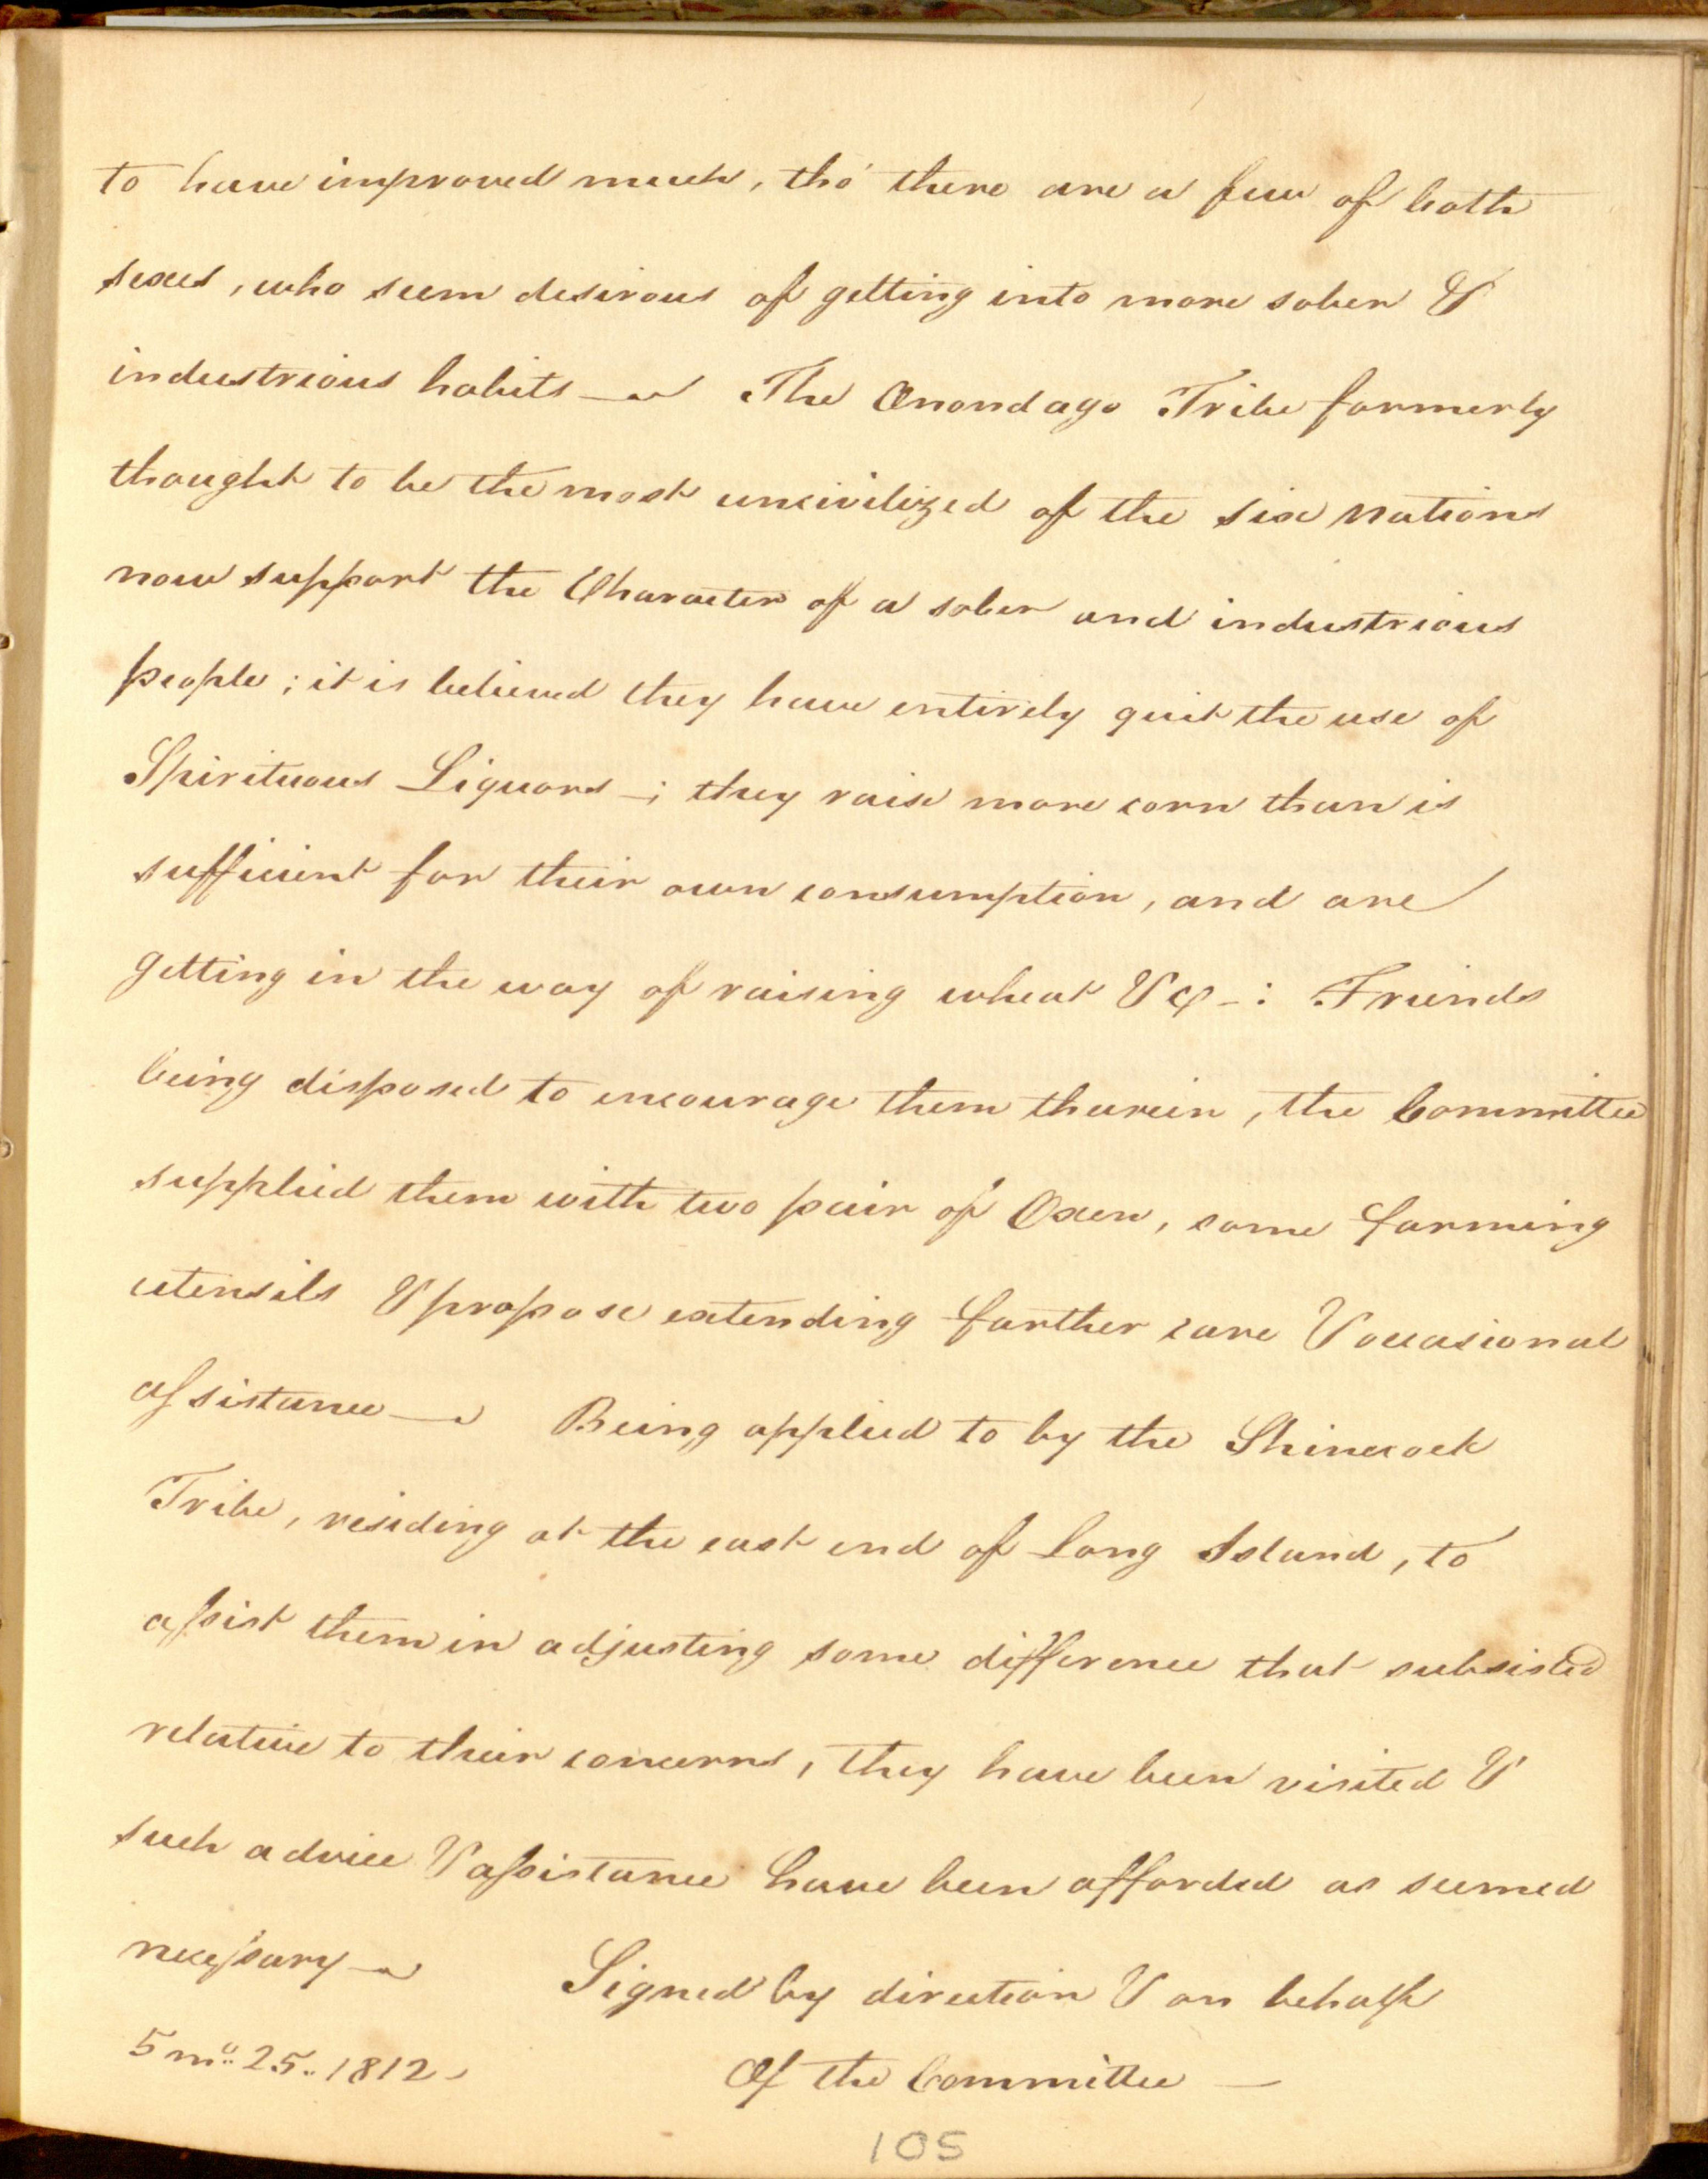 to have improved much, tho' there are a few of both
sexes, who seem desirous of getting into more sober &
industrious habits — The Onondago Tribe formerly
thought to be the most uncivilized of the six Nations
now support the Character of a sober and industrious
people; it is believed they have entirely quit the use of
Spirituous Liquors —; they raise more corn than is
sufficient for their own consumption, and are
getting in the way of raising wheat &c —: Friends
being disposed to encourage them therein, the Committee
supplied them with two pair of Oxen, some farming
utensils & propose extending farther care & occasional
assistance — Being applied to by the Shinecock
Tribe, residing at the east end of Long Island, to
assist them in adjusting some difference that subsisted
relative to their concerns, they have been visited &
such advice & assistance have been afforded as seemed
necessary — Signed by direction & on behalf
5 mo. 25. 1812 Of the Committee —
105